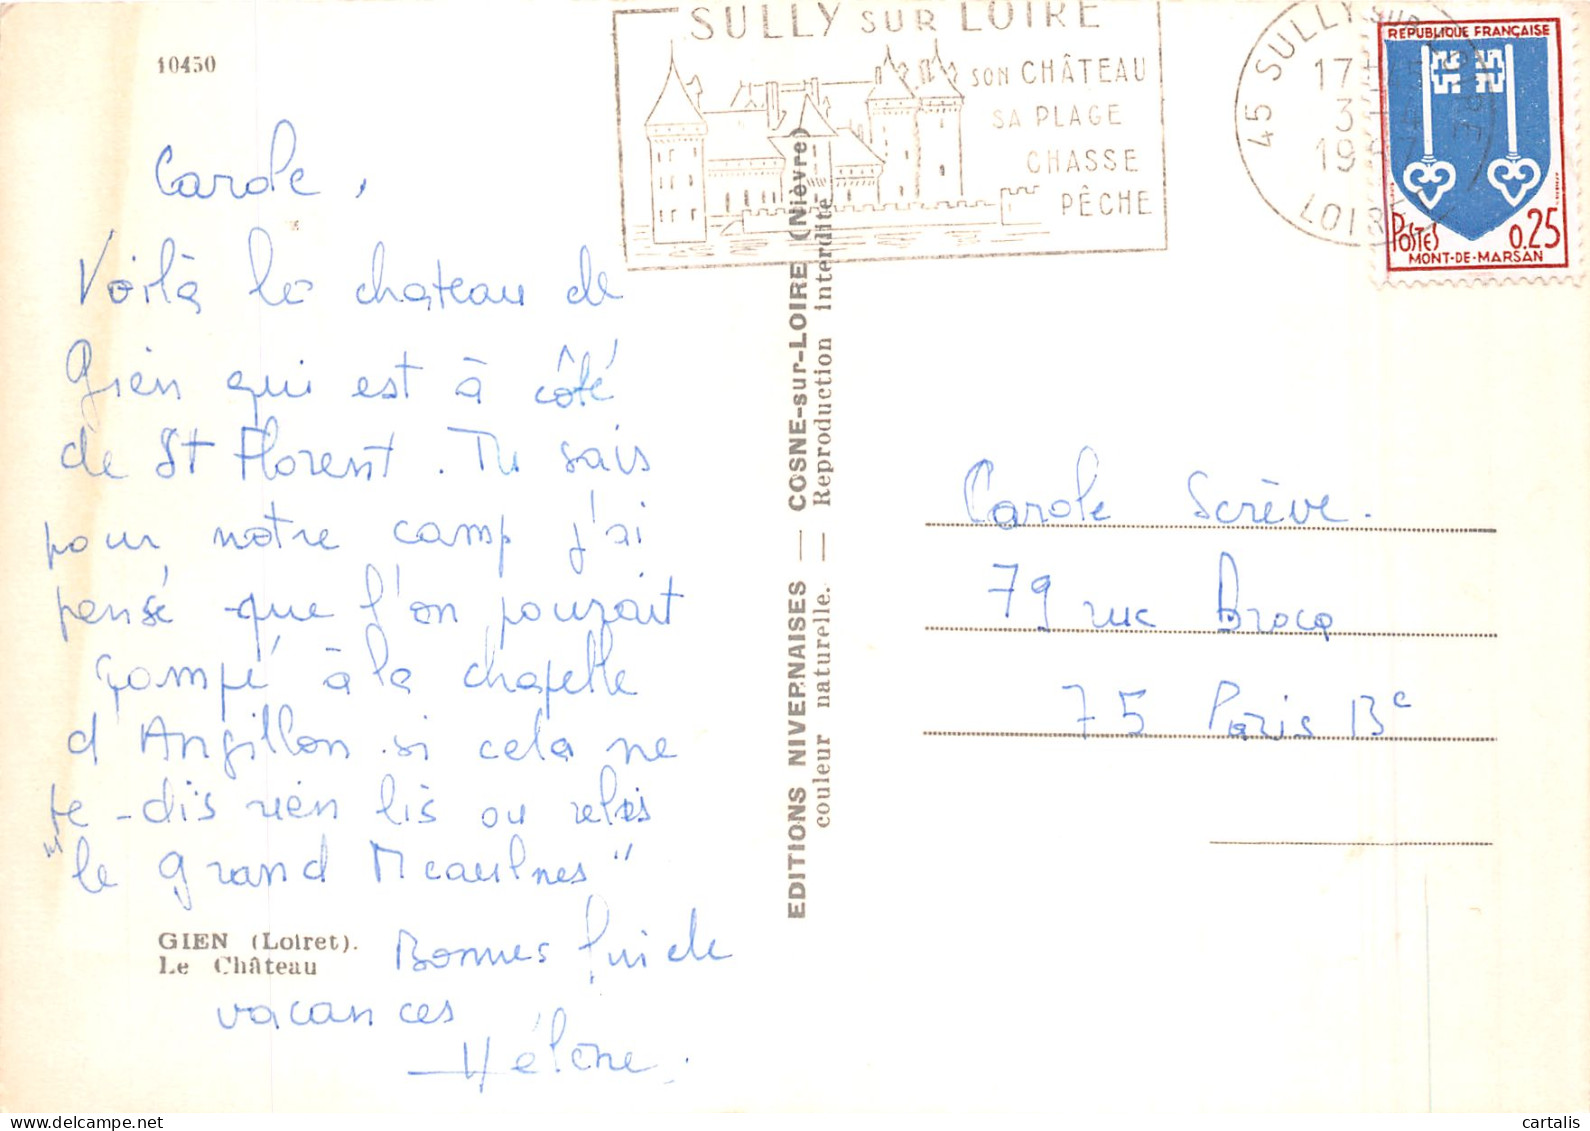 10450
SULLY SUR LOIRE
SON CHÂTEAU
SA PLAGE
CHASSE
PÊCHE
45 SULLY SUR
17
3
19
LOIRET
REPUBLIQUE FRANÇAISE
POSTES 0.25
MONT-DE-MARSAN
Carole,
Voilà le chateau de
Gien qui est à côté
de St Florent. Tu sais
pour notre camp j'ai
pensé que l'on pourait
campé à la chapelle
d'Angillon si cela ne
te dis rien lis ou relis
"le grand Meaulnes"
Bonnes fin de
vacances
Hélène.
GIEN (Loiret).
Le Château
EDITIONS NIVERNAISES — COSNE-sur-LOIRE (Nièvre)
couleur naturelle. — Reproduction interdite
Carole Scrève.
79 rue Broca
75 Paris 13e
cartalis